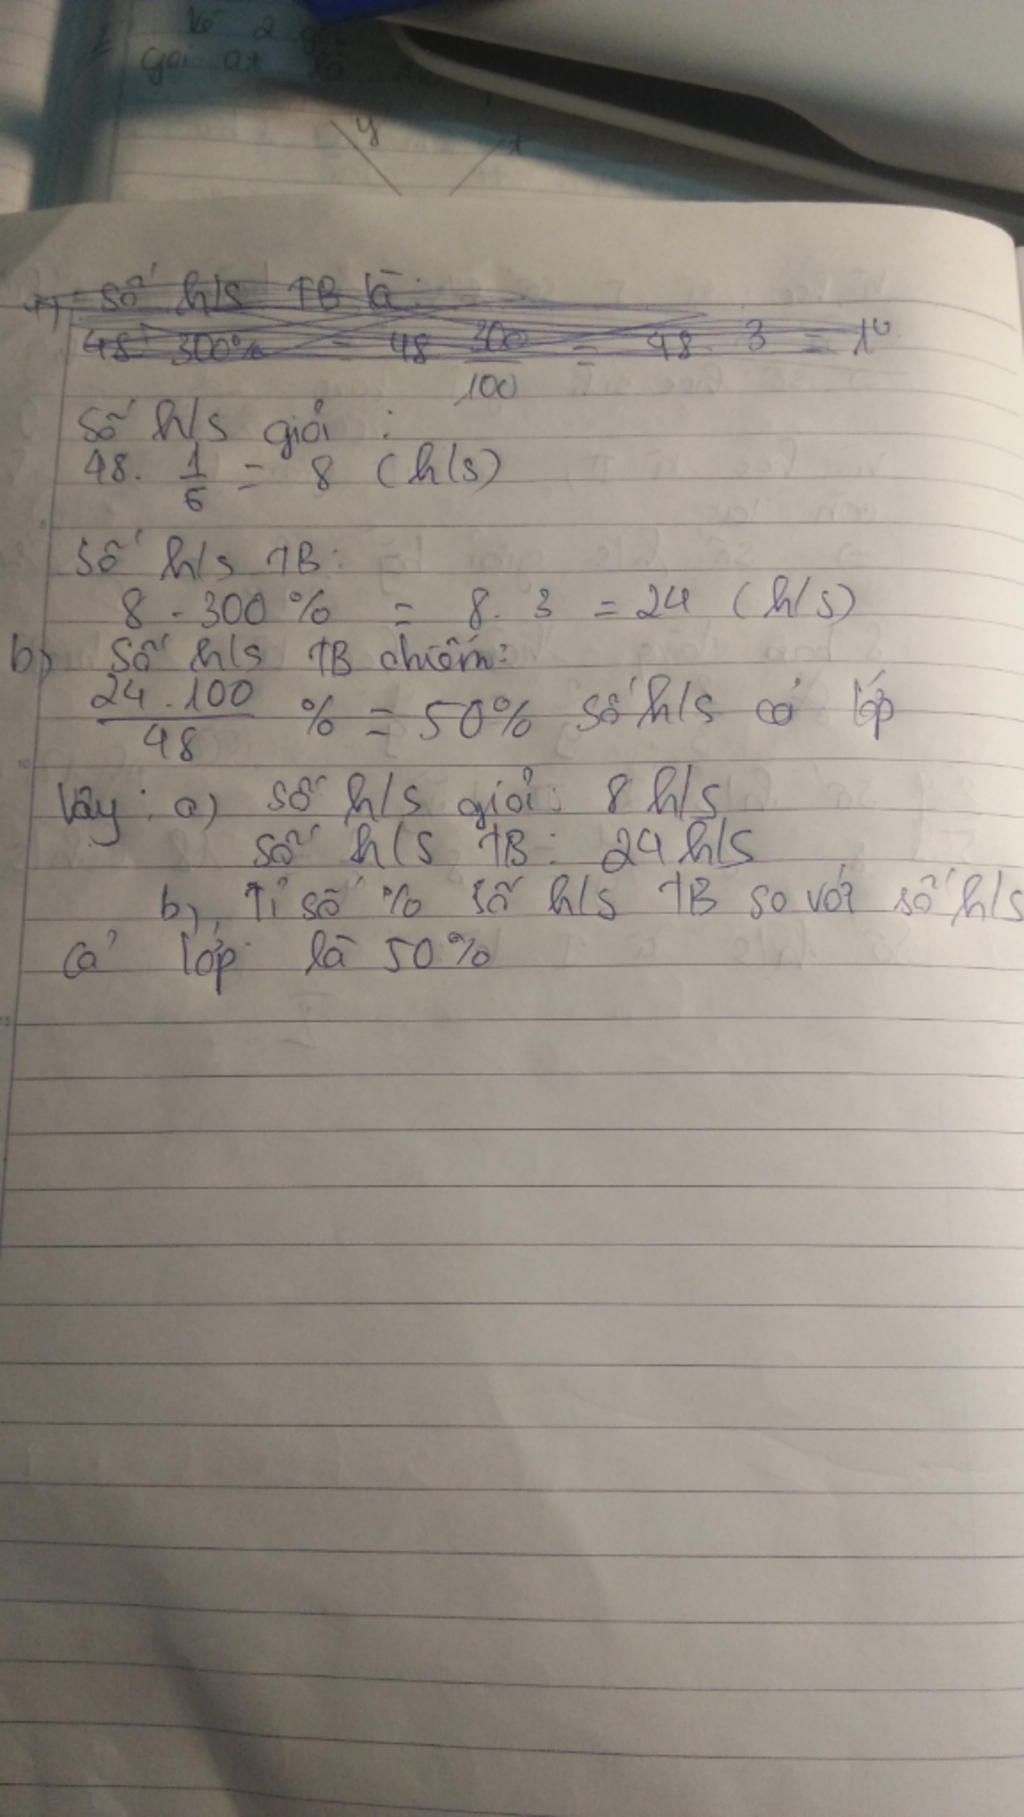 Vẽ 2 góc
Gọi Ot là
y
t
a) Số h/s TB là:
48 300% = 48 300/100 = 48. 3 = 1
Số h/s giỏi :
48. 1/6 = 8 (h/s)
Số h/s TB:
8 . 300% = 8. 3 = 24 (h/s)
b) Số h/s TB chiếm:
24.100/48 % = 50% số h/s cả lớp
Vậy : a) số h/s giỏi: 8 h/s
số h/s TB: 24 h/s
b, Tỉ số % số h/s TB so với số h/s
cả lớp là 50%